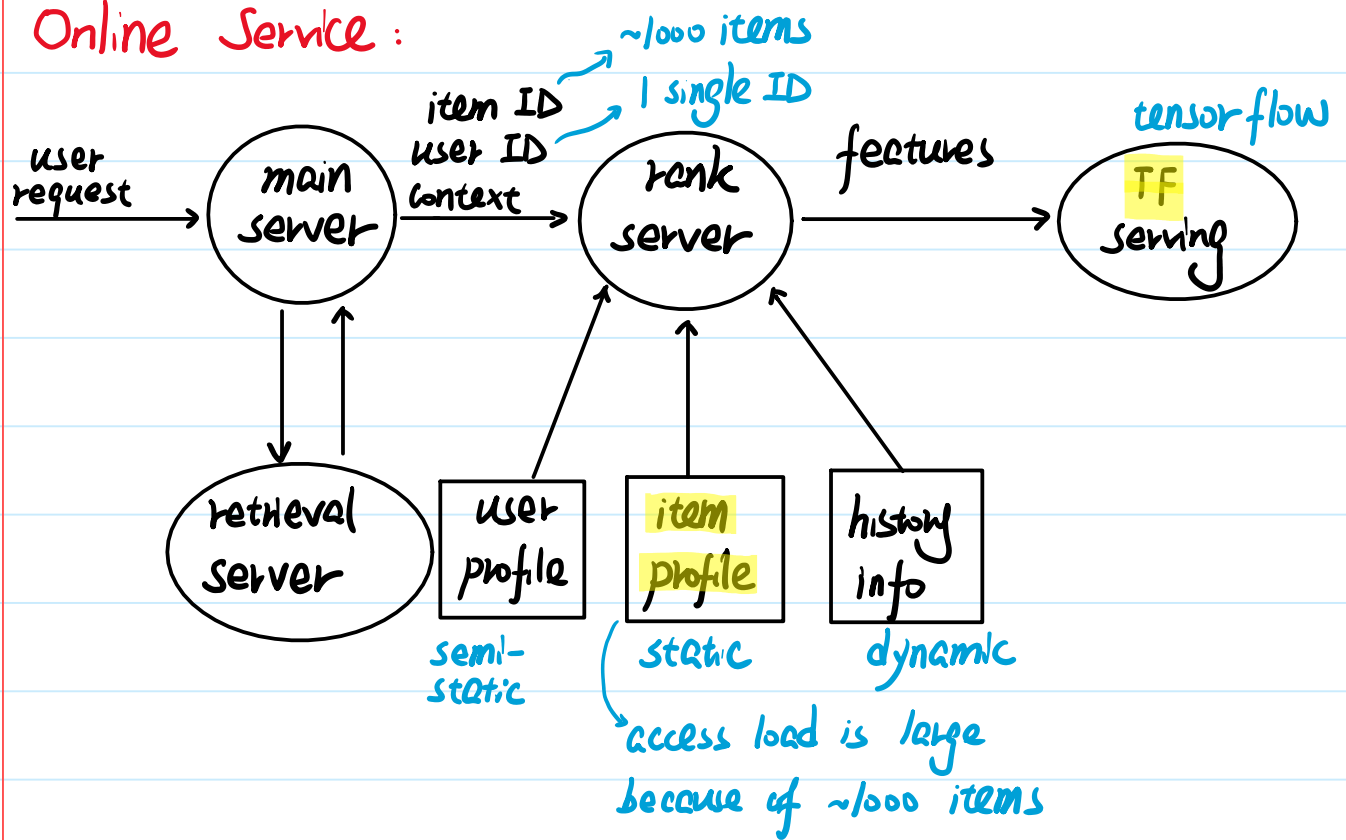 Online Service :
~1000 items
1 single ID
item ID
user ID
context
user
request
main
server
rank
server
features
tensorflow
TF
serving
retrieval
server
user
profile
item
profile
history
info
semi-
static
static
dynamic
access load is large
because of ~1000 items